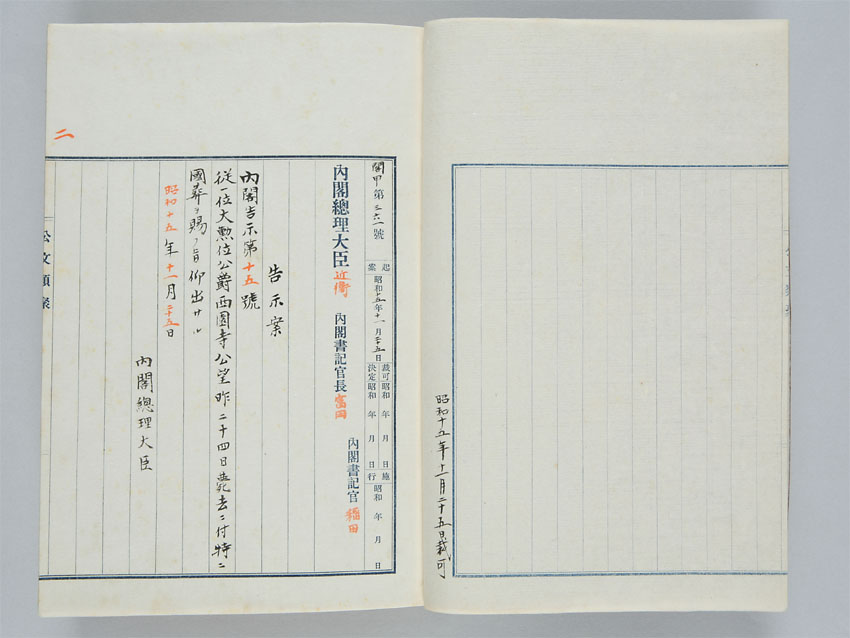 昭和十五年十一月二十五日裁可
閣甲第三六一號
起案 昭和十五年十一月二十五日
裁可 昭和 年 月 日
決定 昭和 年 月 日
施行 昭和 年 月 日
內閣總理大臣 近衞
內閣書記官長 富田
內閣書記官 稲田
告示案
內閣告示第十五號
從一位大勲位公爵西園寺公望昨二十四日薨去ニ付特ニ
國葬ヲ賜フ旨仰出サル
昭和十五年十一月二十五日
內閣總理大臣
二
公文類聚